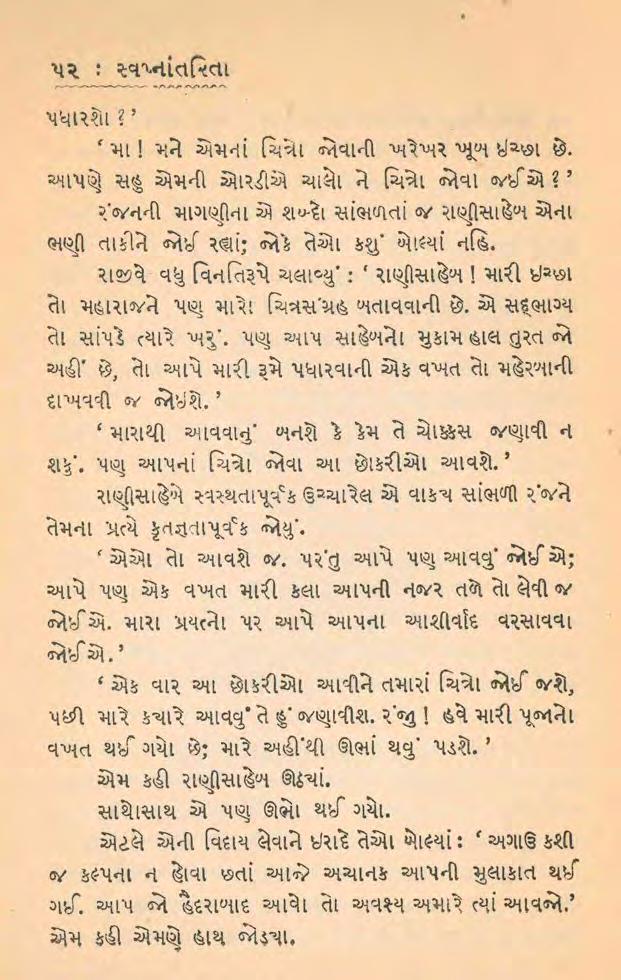 ૫૨ : સ્વપ્નાંતરિતા
પધારશો ?’
‘ મા ! મને એમનાં ચિત્રો જોવાની ખરેખર ખૂબ ઇચ્છા છે.
આપણે સહુ એમની ઓરડીએ ચાલો ને ચિત્રો જોવા જઈએ ? ’
રંજનની માગણીના એ શબ્દો સાંભળતાં જ રાણીસાહેબ એના
ભણી તાકીને જોઈ રહ્યાં; જોકે તેઓ કશું બોલ્યાં નહિ.
રાજીવે વધુ વિનતિરૂપે ચલાવ્યું : ‘ રાણીસાહેબ ! મારી ઇચ્છા
તો મહારાજને પણ મારો ચિત્રસંગ્રહ બતાવવાની છે. એ સદ્‌ભાગ્ય
તો સાંપડે ત્યારે ખરું. પણ આપ સાહેબનો મુકામ હાલ તુરત જો
અહીં છે, તો આપે મારી રૂમે પધારવાની એક વખત તો મહેરબાની
દાખવવી જ જોઇશે. ’
‘ મારાથી આવવાનું બનશે કે કેમ તે ચોક્કસ જણાવી ન
શકું. પણ આપનાં ચિત્રો જોવા આ છોકરીઓ આવશે. ’
રાણીસાહેબે સ્વસ્થતાપૂર્વક ઉચ્ચારેલ એ વાક્ય સાંભળી રંજને
તેમના પ્રત્યે કૃતજ્ઞતાપૂર્વક જોયું.
‘ એઓ તો આવશે જ. પરંતુ આપે પણ આવવું જોઈએ;
આપે પણ એક વખત મારી કલા આપની નજર તળે તો લેવી જ
જોઈએ. મારા પ્રયત્નો પર આપે આપના આશીર્વાદ વરસાવવા
જોઈએ. ’
‘ એક વાર આ છોકરીઓ આવીને તમારાં ચિત્રો જોઈ જશે,
પછી મારે કયારે આવવું તે હું જણાવીશ. રંજુ ! હવે મારી પૂજાનો
વખત થઈ ગયો છે; મારે અહીંથી ઊભાં થવું પડશે. ’
એમ કહી રાણીસાહેબ ઊઠ્યાં.
સાથોસાથ એ પણ ઊભો થઈ ગયો.
એટલે એની વિદાય લેવાને ઇરાદે તેઓ બોલ્યાં : ‘ અગાઉ કશી
જ કલ્પના ન હોવા છતાં આજે અચાનક આપની મુલાકાત થઈ
ગઈ. આપ જો હૈદરાબાદ આવો તો અવશ્ય અમારે ત્યાં આવજો.’
એમ કહી એમણે હાથ જોડ્યા.